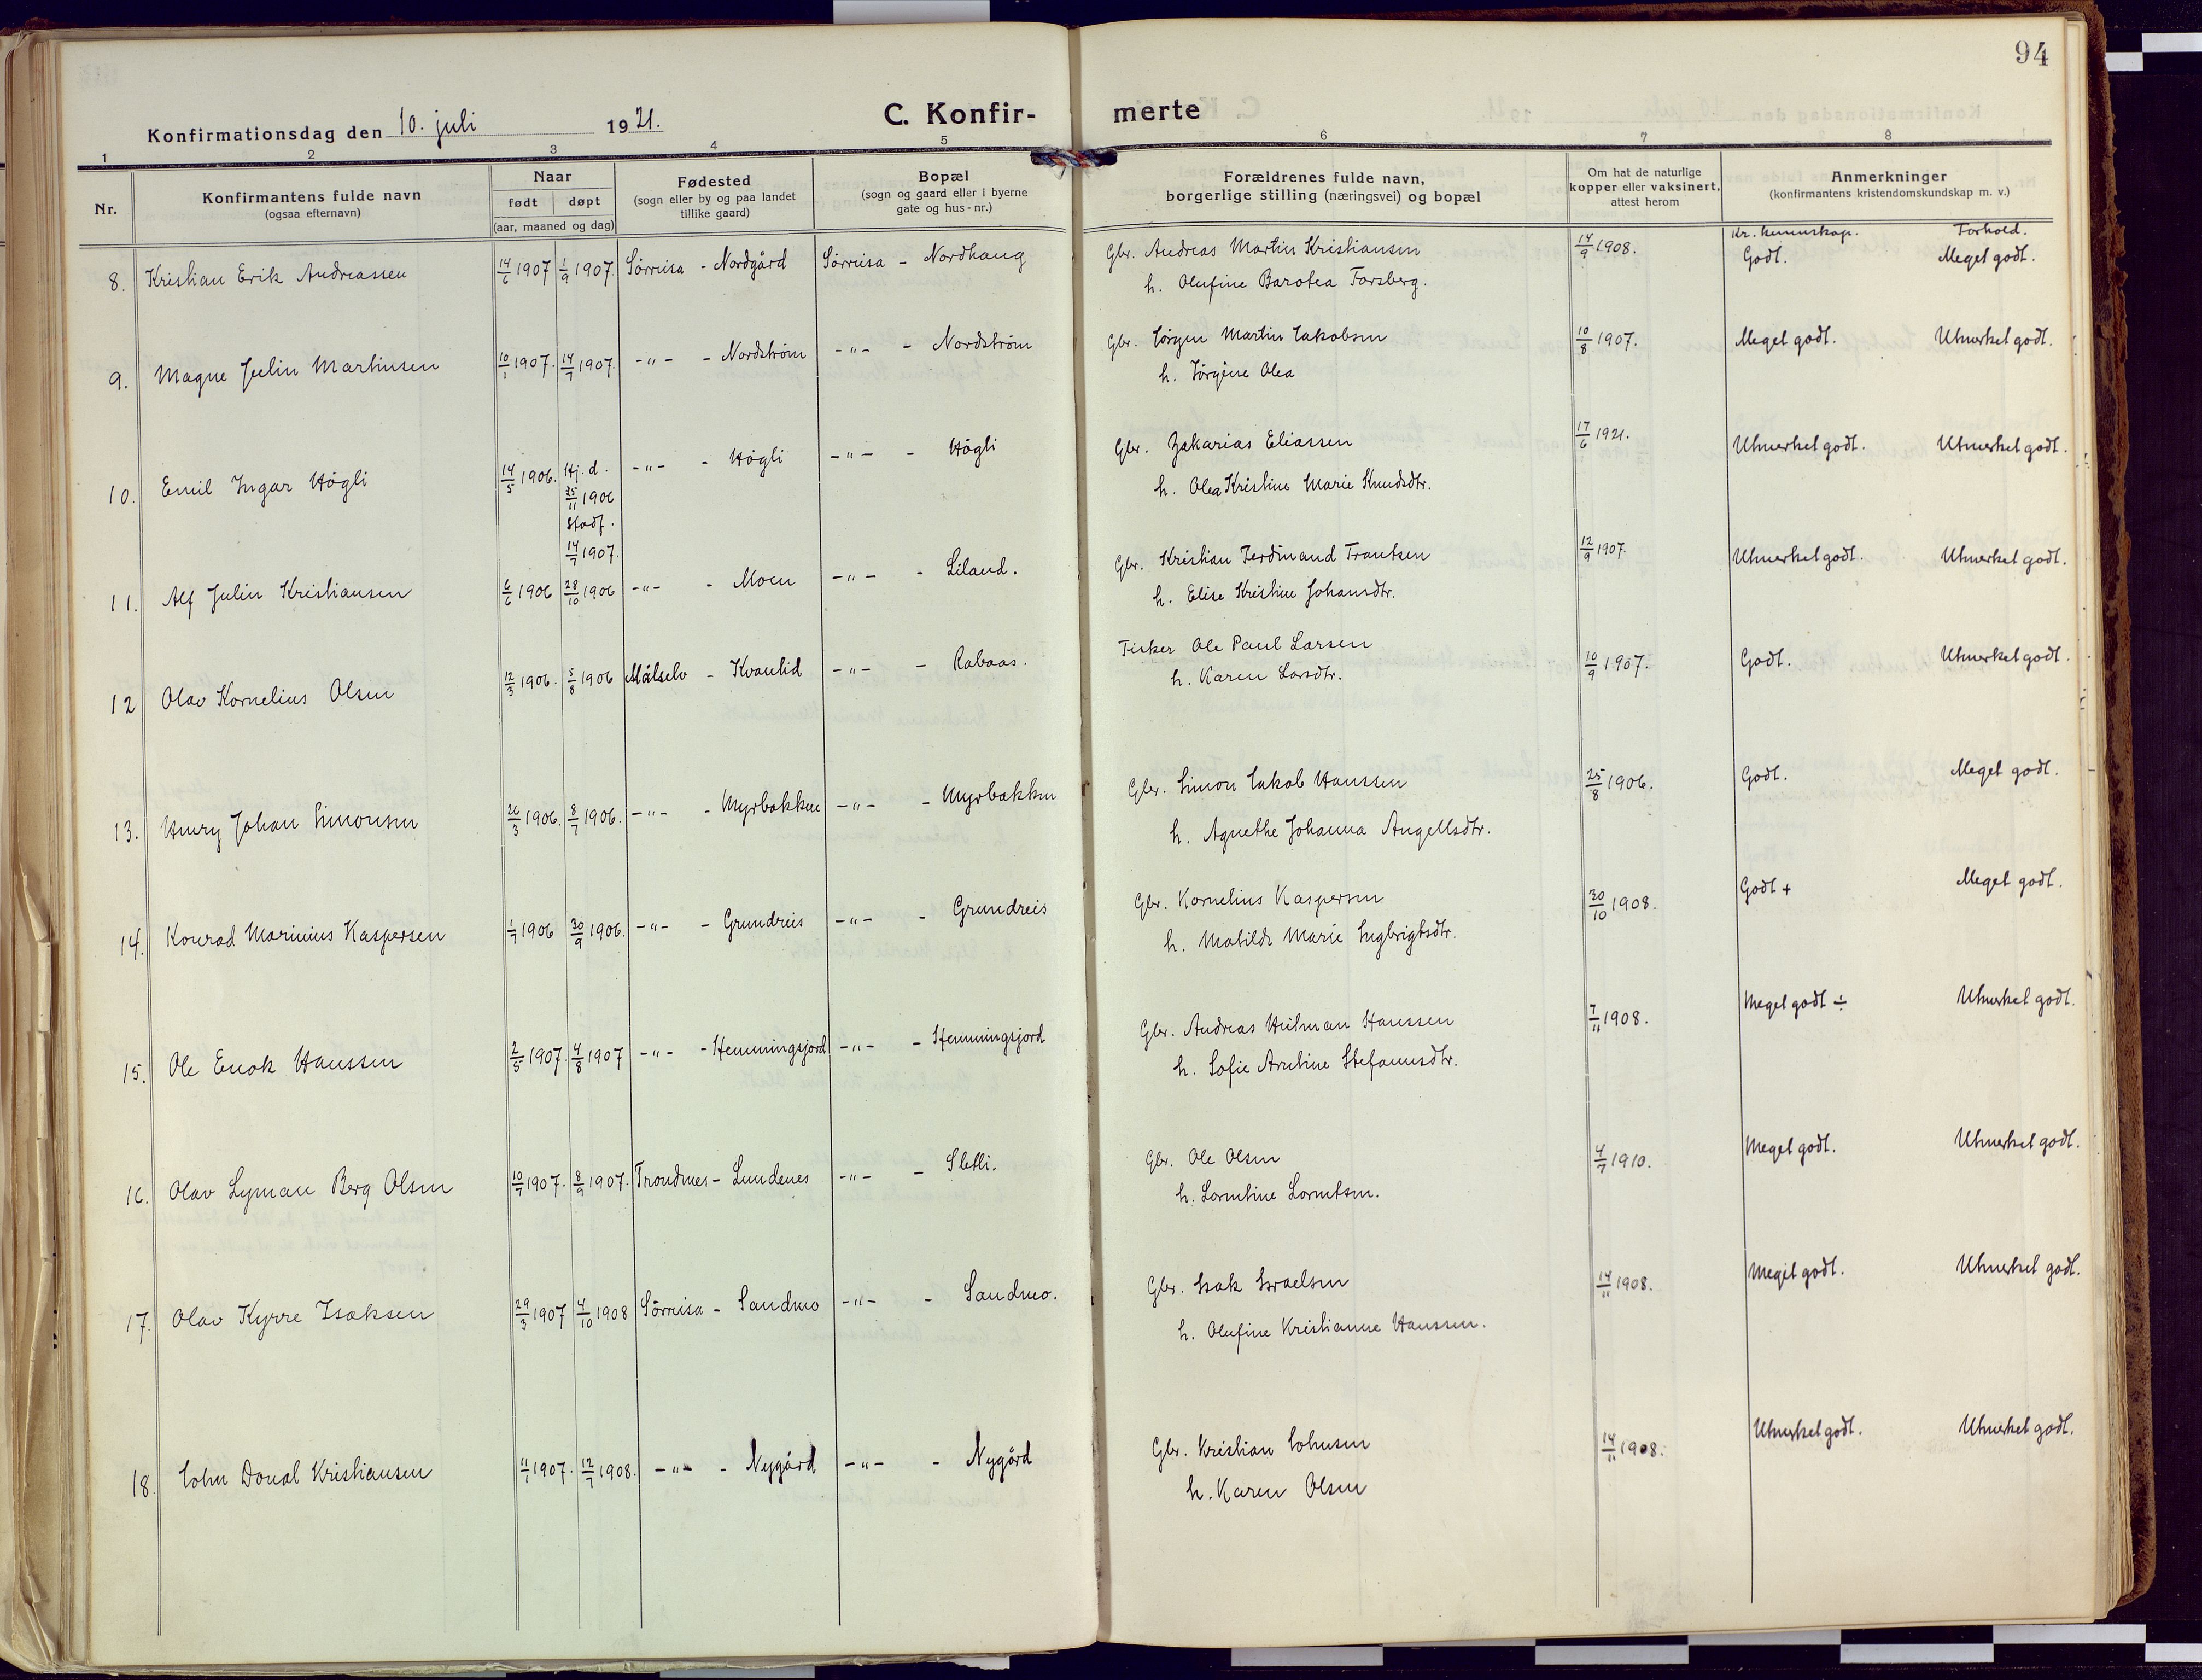 94
C. Konfirmerte
Konfirmationsdag den 10. juli 1921.
1 2 3 4 5 6 7 8
Nr.
Konfirmantens fulde navn
(ogsaa efternavn)
Naar
født døpt
(aar, maaned og dag)
Fødested
(sogn eller by og paa landet
tillike gaard)
Bopæl
(sogn og gaard eller i byerne
gate og hus-nr.)
Forældrenes fulde navn,
borgerlige stilling (næringsvei) og bopæl
Om hat de naturlige
kopper eller vaksinert,
attest herom
Anmerkninger
(konfirmantens kristendomskundskap m. v.)
Kr. kunnskap. Forhold.
8. Kristian Erik Andreassen 14/6 1907 1/9 1907. Sörreisa - Nordgård Sörreisa - Nordhaug Gbr. Andreas Martin Kristiansen 14/9 1908. Godt. Meget godt.
h. Olufine Barotea Forsberg.
9. Magne Julin Martinsen 10/1 1907. 14/7 1907. -"- - Nordstrøm -"- - Nordstrøm Gbr. Jørgen Martin Jakobsen 10/8 1907. Meget godt. Utmerket godt.
h. Jørgine Olea
10. Emil Ingar Högli 14/5 1906. Hj. d. 25/11 1906 Stadf. 14/7 1907. -"- - Högli -"- - Högli Gbr. Zakarias Eliassen 17/6 1921. Utmerket godt. Utmerket godt.
h. Olea Kristine Marie Knudsdtr.
11. Alf Julin Kristiansen 6/6 1906 28/10 1906 -"- - Moen -"- - Liland. Gbr. Kristian Ferdinand Trantsen 12/9 1907. Utmerket godt. Utmerket godt.
h. Elise Kristine Johansdtr.
12 Olav Kornelius Olsen 12/3 1906. 5/8 1906 Målselv - Kvanlid -"- - Rabaas. Fisker Ole Paul Larsen 10/9 1907. Godt. Utmerket godt.
h. Karen Larsdtr.
13. Henry Johan Simonsen 26/3 1906. 8/7 1906. -"- - Myrbakken -"- - Myrbakken Gbr. Simon Jakob Hanssen 25/8 1906. Godt. Meget godt.
h. Agnethe Johanna Angellsdtr.
14. Konrad Marinius Kaspersen 1/7 1906 30/9 1906. -"- - Grundreis -"- - Grundreis Gbr. Kornelius Kaspersen 30/10 1908. Godt + Meget godt.
h. Matilde Marie Ingbrigtsdtr.
15. Ole Enok Hanssen 2/5 1907. 4/8 1907 -"- - Hemmingsjord -"- - Hemmingsjord Gbr. Andreas Hilman Hanssen 7/11 1908. Meget godt ÷ Utmerket godt.
h. Sofie Arntine Stefanusdtr.
16. Olav Lyman Berg Olsen 10/7 1907. 8/9 1907. Trondnes - Lundenes -"- - Sletli. Gbr. Ole Olsen 4/7 1910. Meget godt. Utmerket godt.
h. Lorentine Lorentsen.
17. Olav Kyrre Isaksen 29/3 1907 4/10 1908 Sörreisa - Sandmo -"- - Sandmo. Gbr. Isak Israelsen 14/11 1908. Meget godt. Utmerket godt.
h. Olufine Kristianne Hanssen.
18. John Donal Kristiansen 11/1 1907. 12/7 1908. -"- - Nygård -"- - Nygård Gbr. Kristian Johnsen 14/11 1908. Utmerket godt. Utmerket godt.
h. Karen Olsen